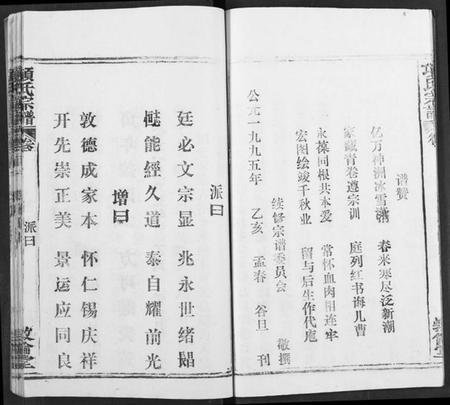 谱赞
亿万神洲冰雪 春来寒尽泛新潮
家藏青卷遵宗训 庭列红书诲儿曹
永葆同根共本爱 常怀血肉相连牢
宏图绘竣千秋业 留与后生作代庖
续修宗谱委员会 敬撰
公元一九九五年 乙亥 孟春 谷旦 刊
派曰
廷必文宗显 兆永世绪
能經久道 泰自耀前光
增曰
敦德成家本 怀仁锡庆祥
开先崇正美 景运应同良
項氏宗譜
卷
派曰
敦倫堂